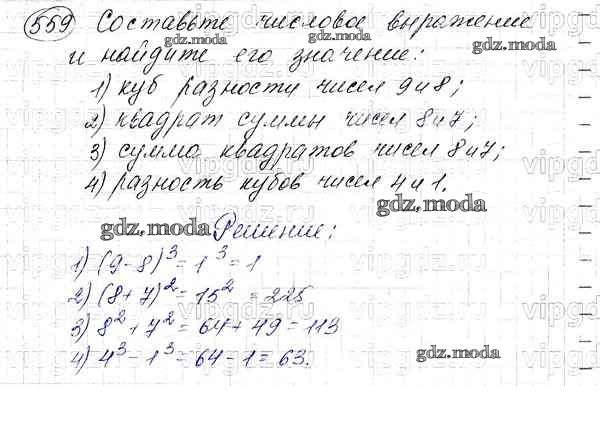 559 Составьте числовое выражение
и найдите его значение:
1) куб разности чисел 9 и 8;
2) квадрат суммы чисел 8 и 7;
3) сумма квадратов чисел 8 и 7;
4) разность кубов чисел 4 и 1.
Решение:
1) (9-8)³ = 1³ = 1
2) (8+7)² = 15² = 225
3) 8² + 7² = 64 + 49 = 113
4) 4³ - 1³ = 64 - 1 = 63.
gdz.moda
gdz.moda
gdz.moda
gdz.moda
gdz.moda
gdz.moda
gdz.moda
gdz.moda